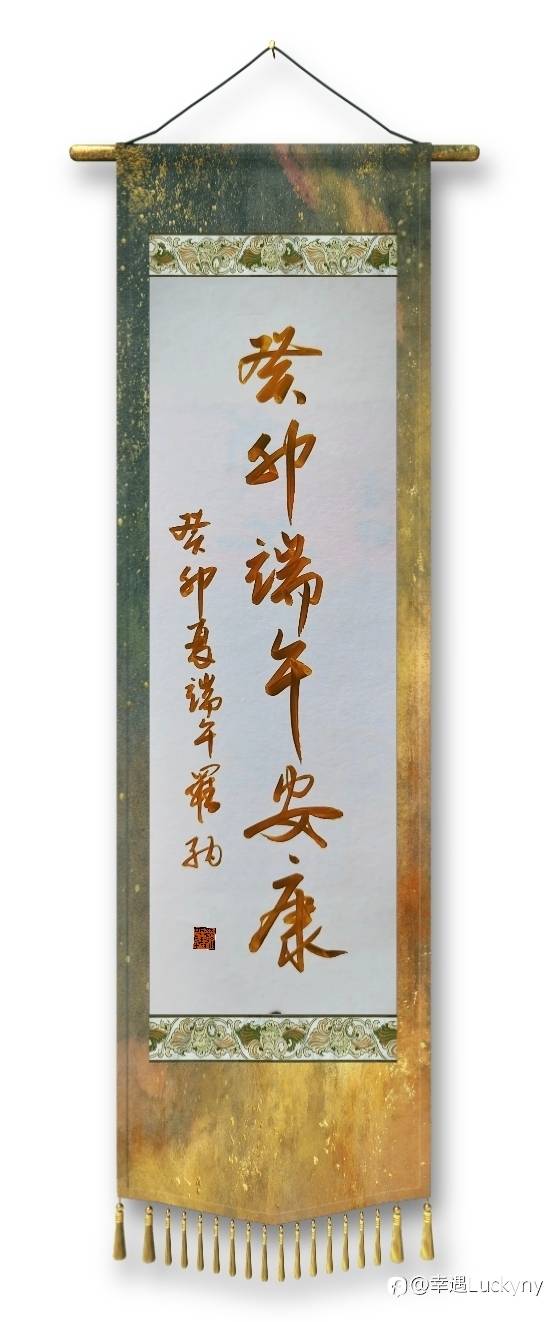 癸卯端午安康
癸卯夏端午羅纳
@幸遇Luckyny